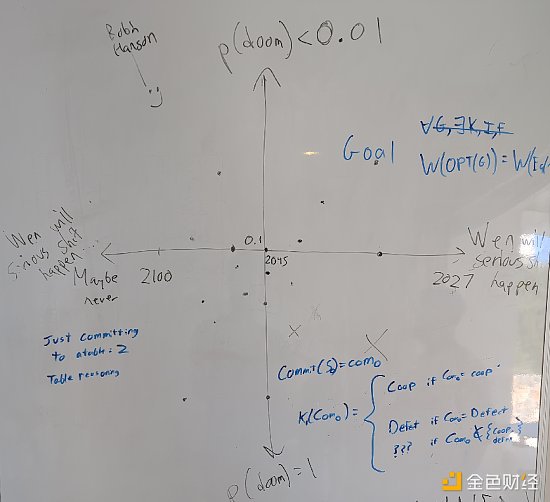 Robh
Hanson
p(doom) < 0.01
Goal
∀G, ∃K, I, F
W(OPT(G)) = W(
Wen will
serious shit
happen
0.1
2045
Maybe
never
2100
2027
Wen will
serious shi
happen
Just committing
to atable: 2
Table reasoning
Commit(S)=com₀
K(Com₀) =
Coop if Com₀ = coop
Defect if Com₀ = Defect
??? if Com₀ ∉ {coop,
defm
p(doom) = 1
金色财经